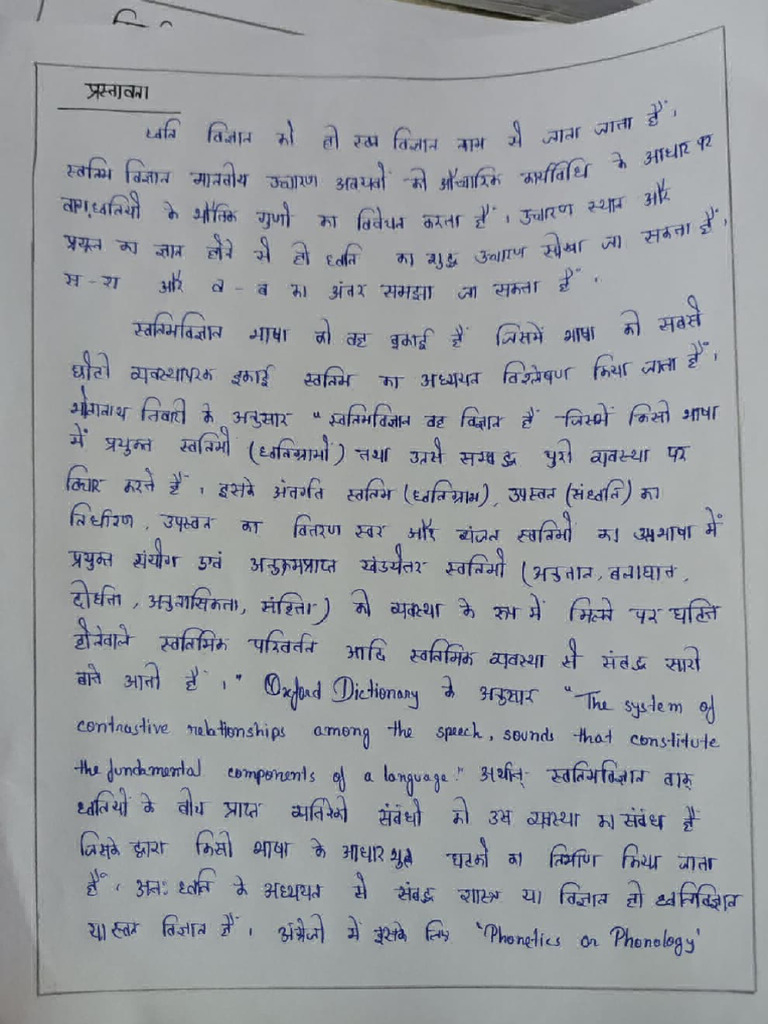 प्रस्तावना
ध्वनि विज्ञान को ही स्वन विज्ञान नाम से जाना जाता है।
स्वनिम विज्ञान मानवीय उच्चारण अवयवों की औच्चारिक कार्यविधि के आधार पर
वाग्ध्वनियों के भौतिक गुणों का विवेचन करता है। उच्चारण स्थान और
प्रयत्न का ज्ञान होने से ही ध्वनि का शुद्ध उच्चारण सीखा जा सकता है,
स - श और व - ब का अंतर समझा जा सकता है।
स्वनिमविज्ञान भाषा की वह इकाई है जिसमें भाषा की सबसे
छोटी व्यवस्थापरक इकाई स्वनिम का अध्ययन विश्लेषण किया जाता है।
भोलानाथ तिवारी के अनुसार "स्वनिमविज्ञान वह विज्ञान है जिसमें किसी भाषा
में प्रयुक्त स्वनिमों (ध्वनिग्रामों) तथा उनसे सम्बद्ध पुरी व्यवस्था पर
विचार करते हैं। इसके अंतर्गत स्वनिम (ध्वनिग्राम), उपस्वन (संध्वनि) का
निर्धारण, उपस्वन का वितरण स्वर और व्यंजन स्वनिमों का उस भाषा में
प्रयुक्त संयोग एवं अनुक्रमप्राप्त खंड्येतर स्वनिमों (अनुतान, बलाघात,
दीर्घता, अनुनासिकता, संहिता) की व्यवस्था के रूप में मिलने पर घटित
होनेवाले स्वनिमिक परिवर्तन आदि स्वनिमिक व्यवस्था से संबद्ध सारी
बाते आती हैं।" Oxford Dictionary के अनुसार "The system of
contrastive relationships among the speech, sounds that constitute
the fundamental components of a language." अर्थात् स्वनिमविज्ञान वाक्
ध्वनियों के बीच प्राप्त व्यतिरेकी संबंधो की उस व्यवस्था का संबंध है
जिसके द्वारा किसी भाषा के आधारभूत घटकों का निर्माण किया जाता
है। अतः ध्वनि के अध्ययन से संबद्ध शास्त्र या विज्ञान ही ध्वनिविज्ञान
या स्वन विज्ञान है। अंग्रेजी में इसके लिए 'Phonetics or Phonology'